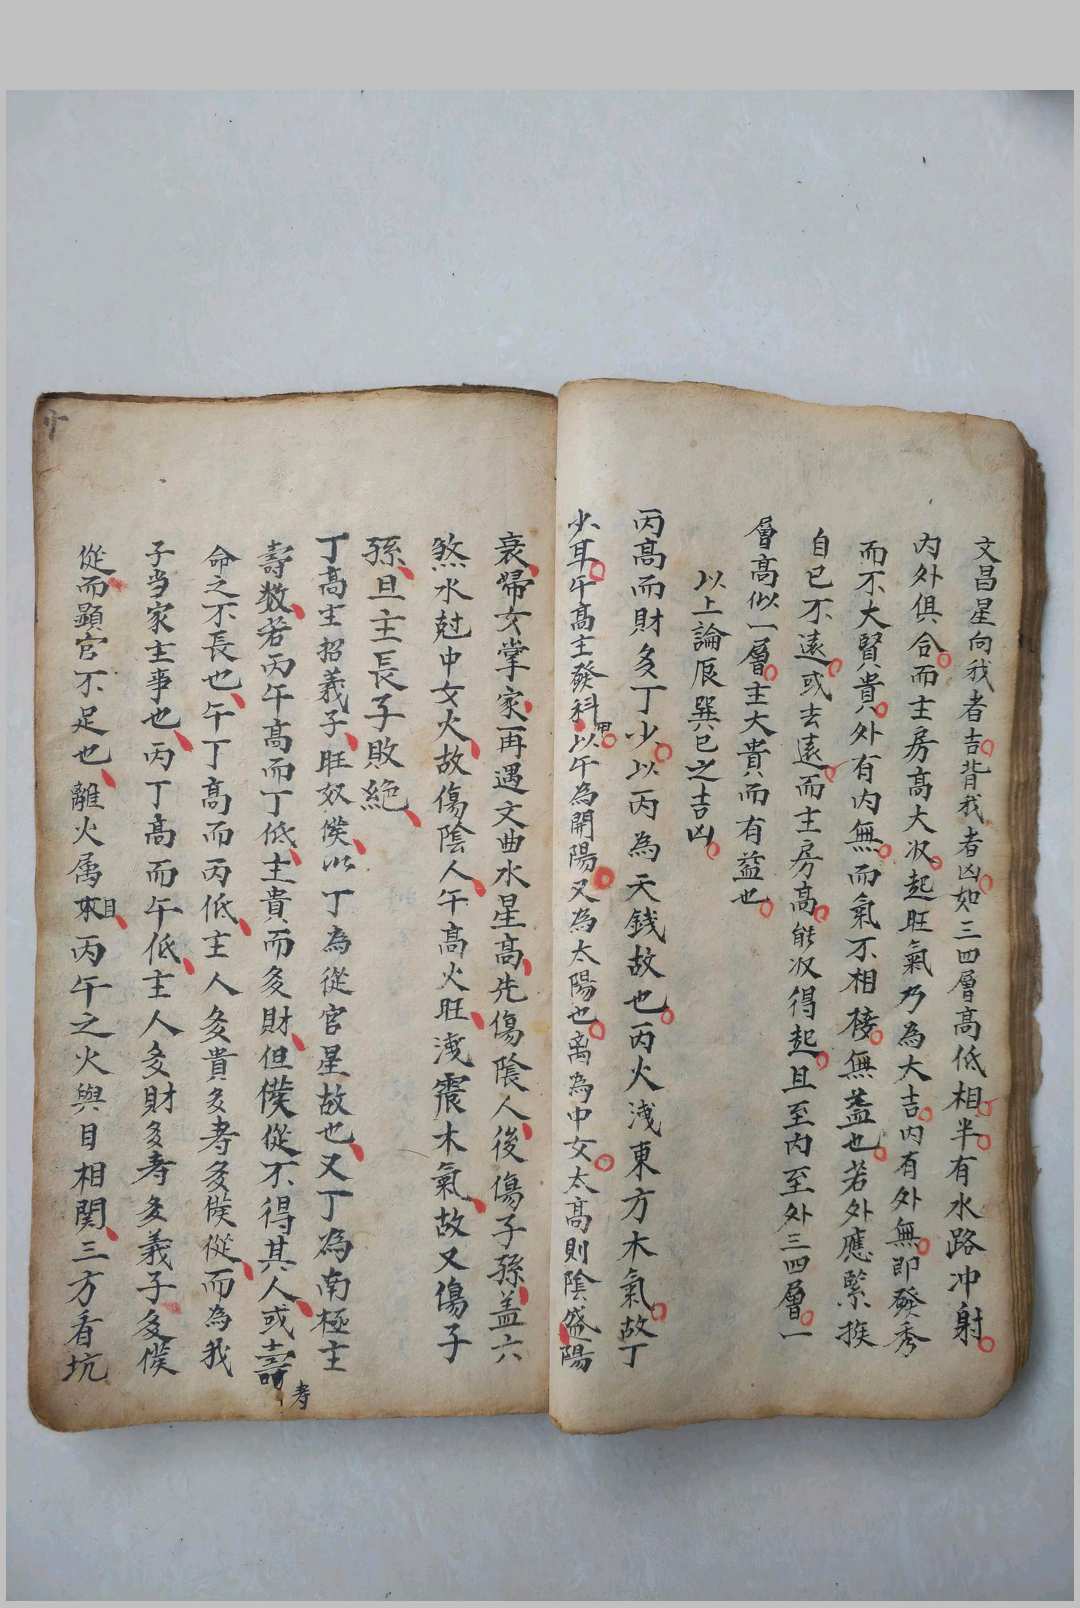 文昌星向我者吉背我者凶如三四層高低相半有水路冲射
内外俱合而主房高大収起旺氣乃為大吉内有外無即發秀
而不大賢貴外有内無而氣不相接無益也若外應緊挨
自已不遠或去遠而主房高能収得起且至内至外三四層一
層高似一層主大貴而有益也
以上論辰巽巳之吉凶
丙高而財多丁少以丙為天錢故也丙火洩東方木氣故丁
少耳午高主發科甲以午為開陽又為太陽也离為中女太高則陰盛陽
衰帰女掌家再遇文曲水星高先傷陰人後傷子孫盖六
煞水尅中女火故傷陰人午高火旺洩震木氣故又傷子
孫且主長子敗絶
丁高主招義子旺奴僕以丁為從官星故也又丁為南極主
壽数若丙午高而丁低主貴而多財但僕從不得其人或壽
寿
命之不長也午丁高而丙低主人多貴多寿多僕從而為我
子当家主事也丙丁高而午低主人多財多寿多義子多僕
從而顕官不足也離火属目丙午之火與目相関三方看坑